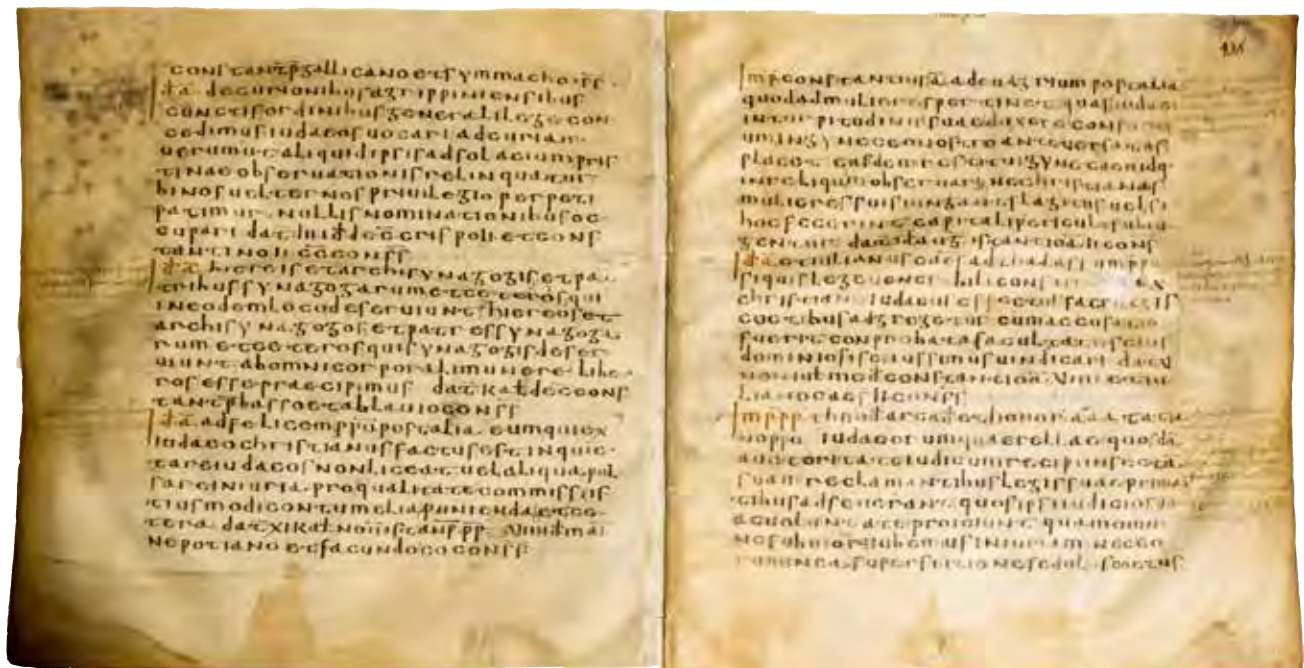 constantp gallicano et symmacho
id a decurionibus agrippiniensibus
cunctis ordinibus generali lege con
cedimus iudaeos uocari ad curiam
uerum ut aliquid ipsis ad solacium pris
tinae obseruationis relinquatur
binos uel ternos priuilegio perpeti
patimur nullis nominationibus oc
cupari dat iii id dec crispo ii et cons
tantino ii cc conss
id a hiereis et archisynagogis et pa
tribus synagogarum et ceteros qui
in eodem loco deseruiunt hiereos et
archisynagogos et patres synagoga
rum et ceteros qui synagogis deser
uiunt ab omni corporali munere libe
ros esse praecipimus dat kal dec cons
tantp basso et ablauio conss
id a ad felicem ppo post alia eum qui ex
iudaeo christianus factus est inquie
tare iudaeos non liceat uel aliqua pul
sare iniuria pro qualitate commissi is
tiusmodi contumelia punienda et ce
tera dat xi kal nou
nepotiano et facundo conss
imp constantius a ad euagrium post alia
quod ad mulieres pertinet quas iudaei
in turpitudinis suae duxere consortium
in gynaeceo
placet easdem restitui gynaeceo idq
in reliquum obseruari ne christianas
mulieres suis iungant flagitiis uel si
hoc fecerint capitali periculo subiu
gentur dat id aug constantio a ii cons
id a et iulianus ad thalassium ppo
si quis lege uenerabili constituta ex
christiano iudaeus effectus sacrilegis
coetibus adgregetur cum accusatio
fuerit conprobata facultates eius
dominio fisci iussimus uindicari dat
non iul med constantio a viiii et iu
liano caes ii conss
imppp theod arcad et honor aaa tatia
no ppo iudaeorum querellae quosdam
auctoritate iudicum recipi in sectam
suam reclamantibus legis suae prima
tibus adseuerant quos ipsi iudicio suo
ac uoluntate proiciunt quam omni
no submoueri iubemus iniuriam nec eo
rum in ea superstitione sedulus coetus